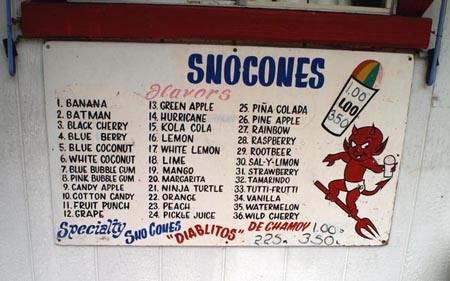 SNOCONES
Flavors
1. BANANA
2. BATMAN
3. BLACK CHERRY
4. BLUE BERRY
5. BLUE COCONUT
6. WHITE COCONUT
7. BLUE BUBBLE GUM
8. PINK BUBBLE GUM
9. CANDY APPLE
10. COTTON CANDY
11. FRUIT PUNCH
12. GRAPE
13. GREEN APPLE
14. HURRICANE
15. KOLA COLA
16. LEMON
17. WHITE LEMON
18. LIME
19. MANGO
20. MARGARITA
21. NINJA TURTLE
22. ORANGE
23. PEACH
24. PICKLE JUICE
25. PIÑA COLADA
26. PINE APPLE
27. RAINBOW
28. RASPBERRY
29. ROOTBEER
30. SAL-Y-LIMON
31. STRAWBERRY
32. TAMARINDO
33. TUTTI-FRUTTI
34. VANILLA
35. WATERMELON
36. WILD CHERRY
1.00
2.00
3.50
Specialty SNO CONES "DIABLITOS" DE CHAMOY 1.00
2.25 3.50